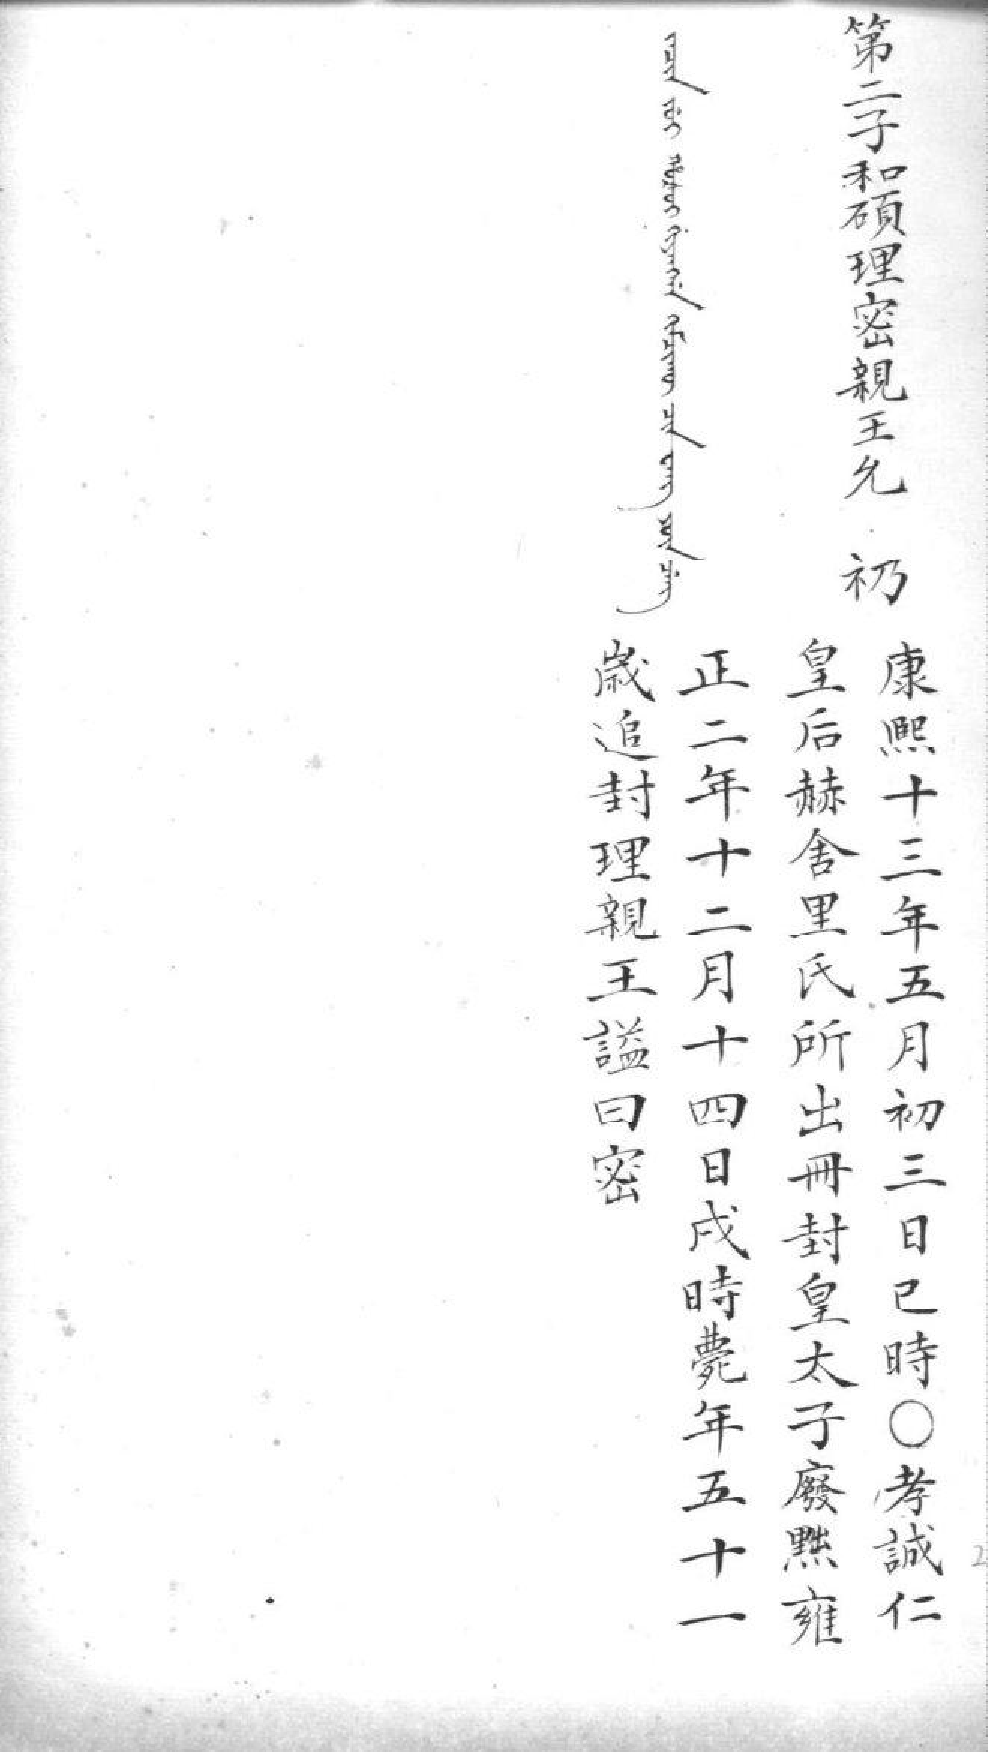 第二子和碩理密親王允礽
康熙十三年五月初三日巳時〇孝誠仁
皇后赫舍里氏所出冊封皇太子廢黜雍
正二年十二月十四日戌時薨年五十一
歲追封理親王謚曰密